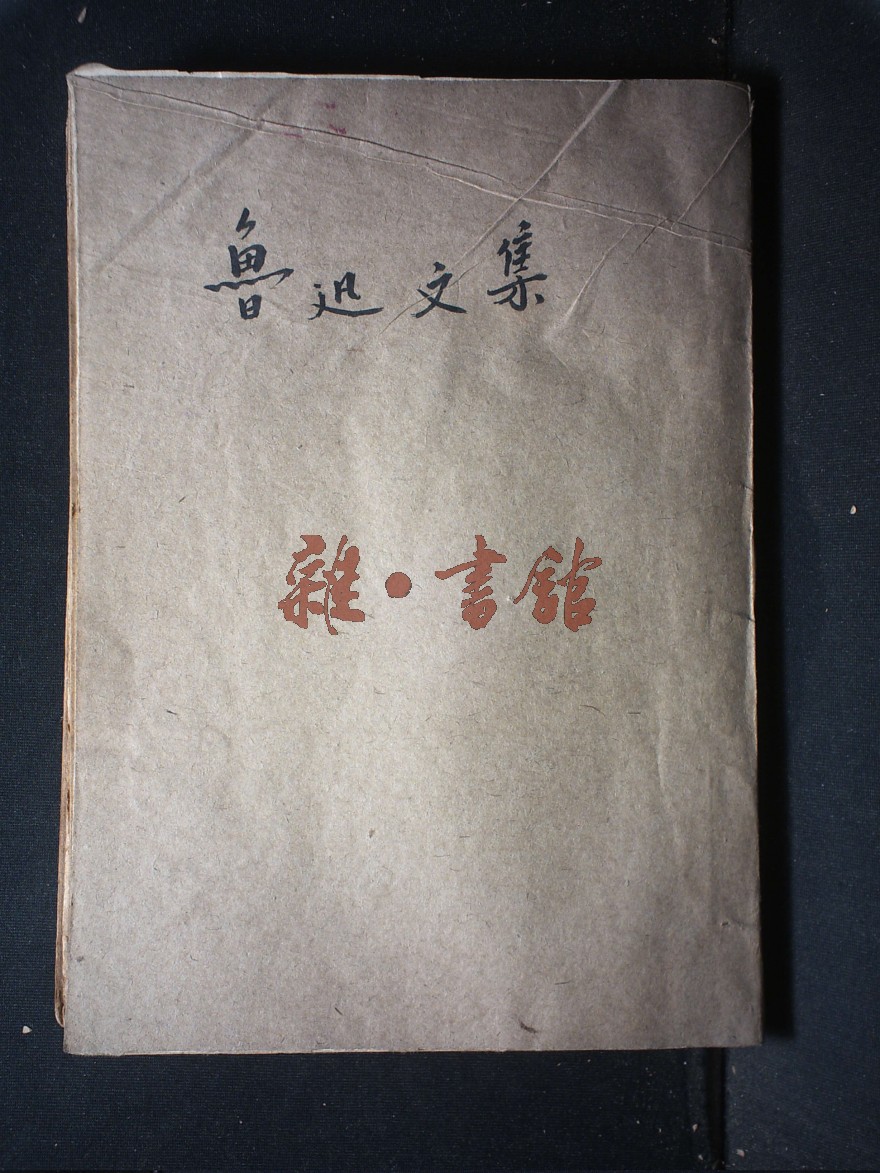 魯迅文集
雜·書館